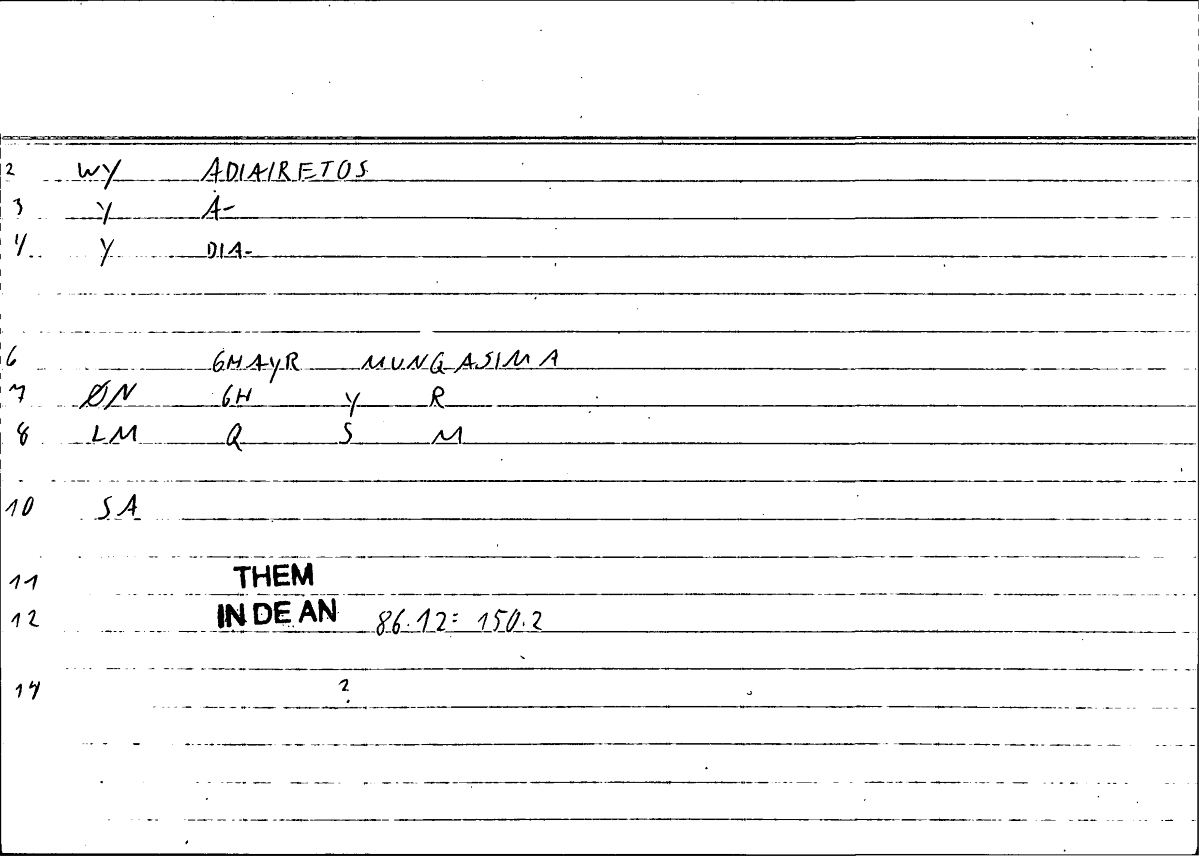 2 WY ADIAIRETOS
3 Y A-
4 Y DIA-
6 GHAYR MUNQASIMA
7 ØN GH Y R
8 LM Q S M
10 SA
11 THEM
12 IN DE AN 86.12 = 150.2
14 ?